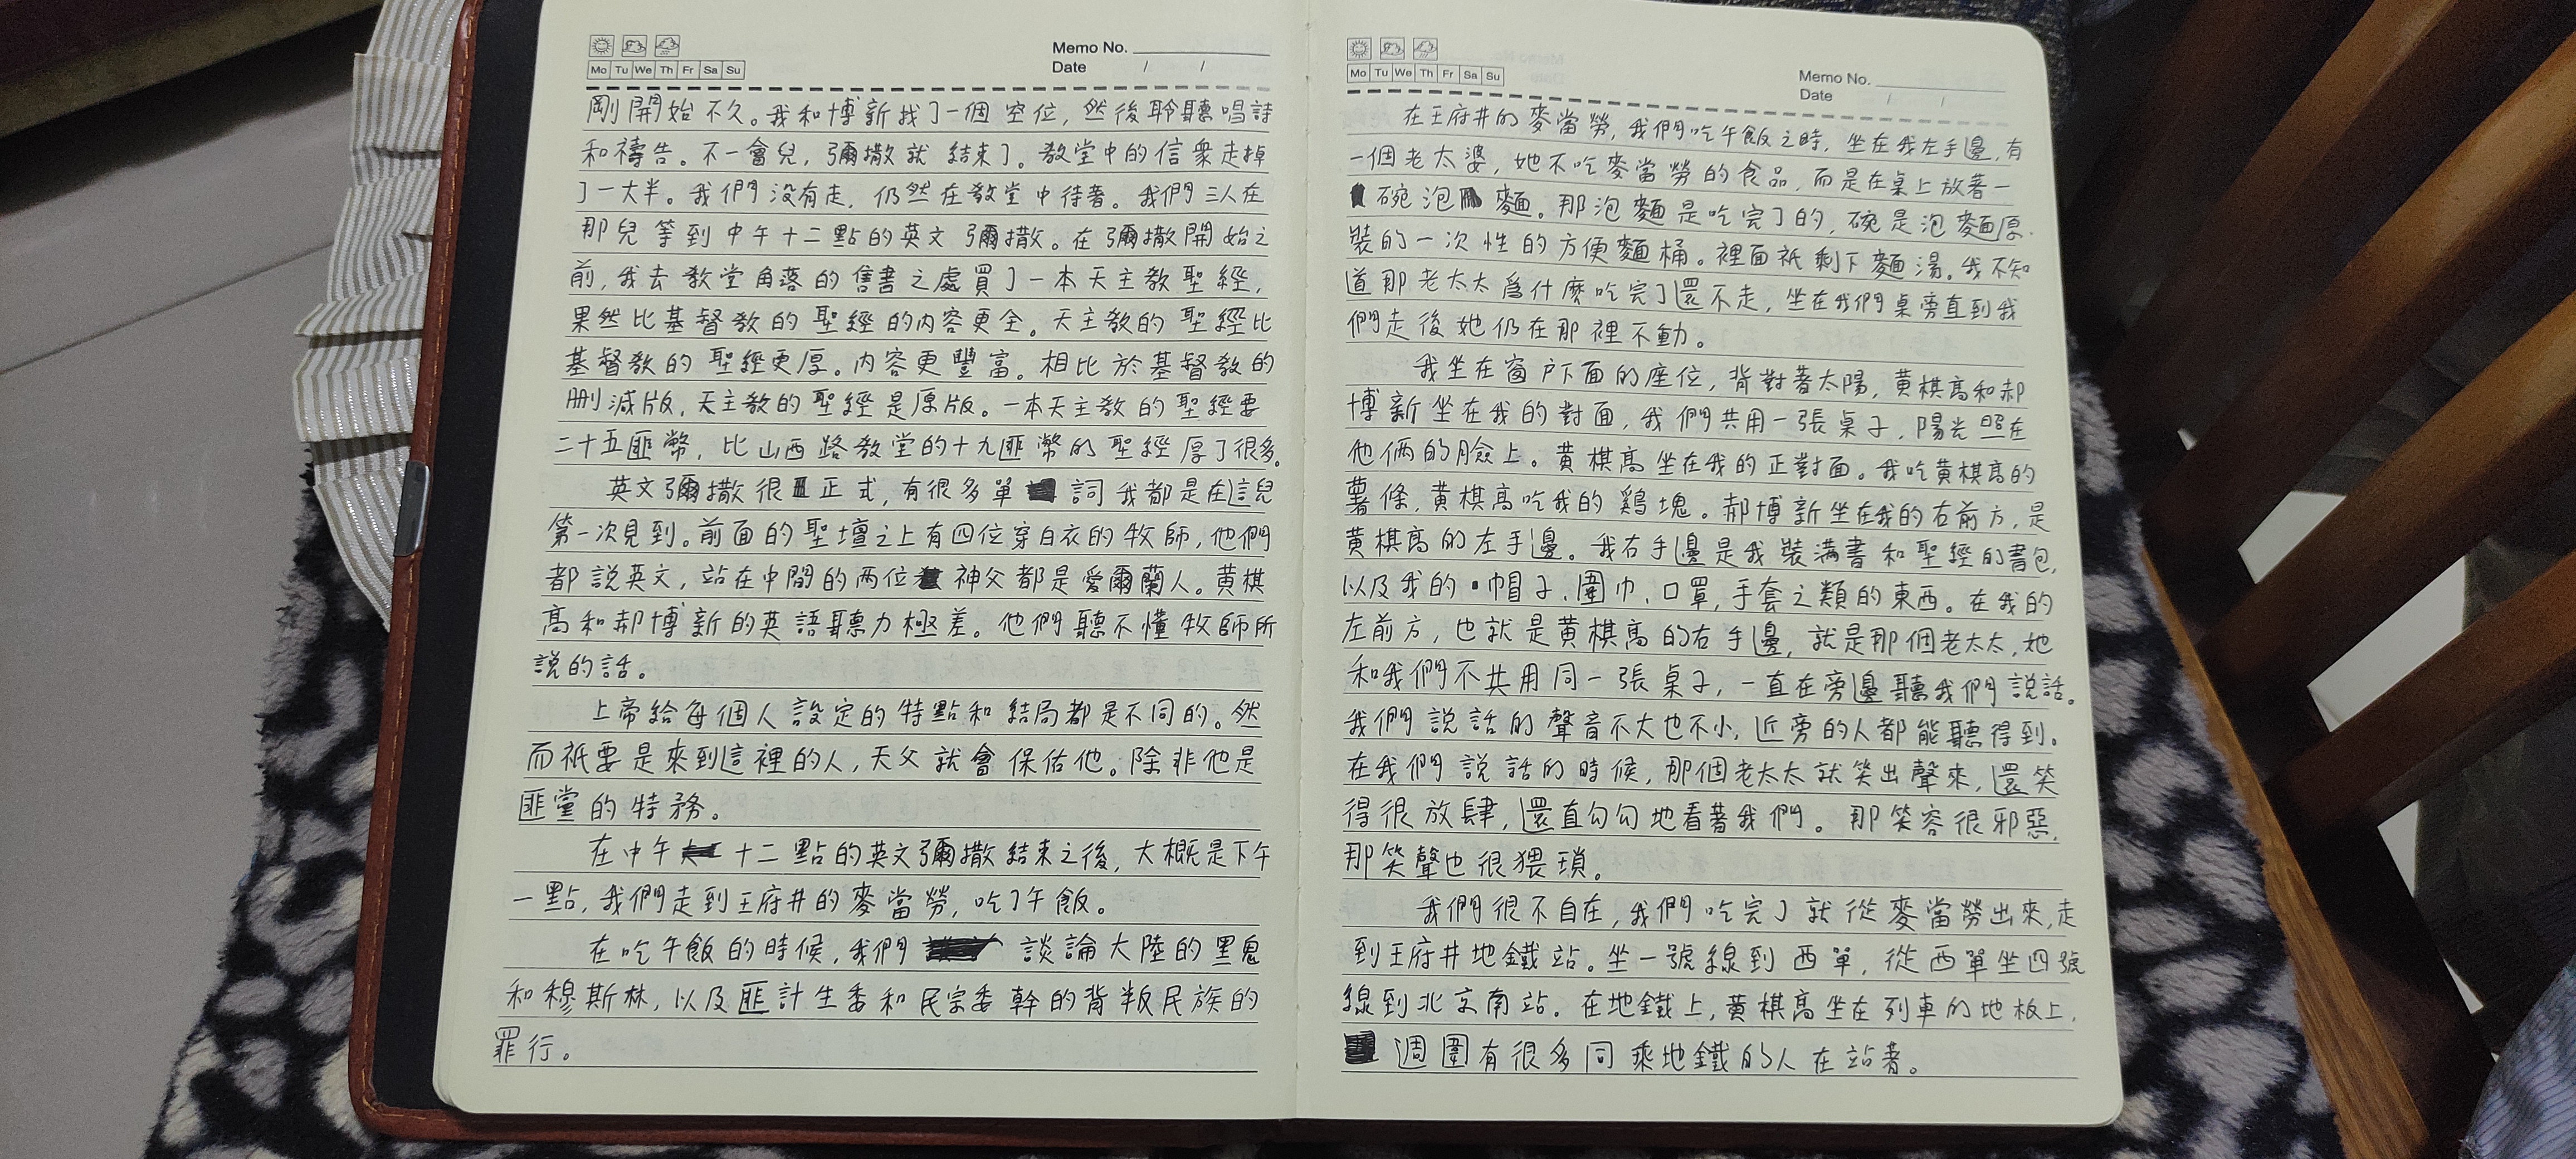 Memo No.
Mo Tu We Th Fr Sa Su
Date / /
剛開始不久。我和博新找了一個空位，然後聆聽唱詩
和禱告。不一會兒，彌撒就結束了。教堂中的信衆走掉
了一大半。我們没有走，仍然在教堂中待著。我們三人在
那兒等到中午十二點的英文彌撒。在彌撒開始之
前，我去教堂角落的售書之處買了一本天主教聖經，
果然比基督教的聖經的内容更全。天主教的聖經比
基督教的聖經更厚。内容更豐富。相比於基督教的
删減版，天主教的聖經是原版。一本天主教的聖經要
二十五匪幣，比山西路教堂的十九匪幣的聖經厚了很多。
英文彌撒很正式，有很多單詞我都是在這兒
第一次見到。前面的聖壇之上有四位穿白衣的牧師，他們
都説英文，站在中間的两位神父都是愛爾蘭人。黄棋
高和郝博新的英語聽力極差。他們聽不懂牧師所
説的話。
上帝給每個人設定的特點和結局都是不同的。然
而祇要是來到這裡的人，天父就會保佑他。除非他是
匪黨的特務。
在中午十二點的英文彌撒結束之後，大概是下午
一點，我們走到王府井的麥當勞，吃了午飯。
在吃午飯的時候，我們談論大陸的黑鬼
和穆斯林，以及匪計生委和民宗委幹的背叛民族的
罪行。
Memo No.
Mo Tu We Th Fr Sa Su
Date / /
在王府井的麥當勞，我們吃午飯之時，坐在我左手邊，有
一個老太婆，她不吃麥當勞的食品，而是在桌上放著一
碗泡麵。那泡麵是吃完了的，碗是泡麵原
裝的一次性的方便麵桶。裡面祇剩下麵湯。我不知
道那老太太爲什麽吃完了還不走，坐在我們桌旁直到我
們走後她仍在那裡不動。
我坐在窗户下面的座位，背對著太陽，黄棋高和郝
博新坐在我的對面，我們共用一張桌子，陽光照在
他倆的臉上。黄棋高坐在我的正對面。我吃黄棋高的
薯條，黄棋高吃我的鷄塊。郝博新坐在我的右前方，是
黄棋高的左手邊。我右手邊是我裝满書和聖經的書包，
以及我的帽子、圍巾、口罩，手套之類的東西。在我的
左前方，也就是黄棋高的右手邊，就是那個老太太，她
和我們不共用同一張桌子，一直在旁邊聽我們説話。
我們説話的聲音不大也不小，近旁的人都能聽得到。
在我們説話的時候，那個老太太就笑出聲來，還笑
得很放肆，還直勾勾地看著我們。那笑容很邪惡，
那笑聲也很猥瑣。
我們很不自在，我們吃完了就從麥當勞出來，走
到王府井地鐵站。坐一號線到西單，從西單坐四號
線到北京南站。在地鐵上，黄棋高坐在列車的地板上，
週圍有很多同乘地鐵的人在站著。